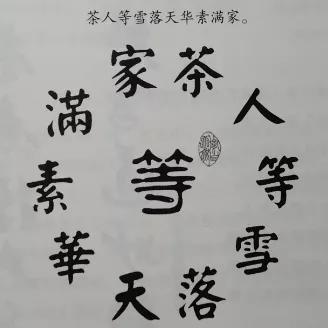 茶人等雪落天华素满家。
茶
人
等
雪
落
天
華
素
滿
家
等